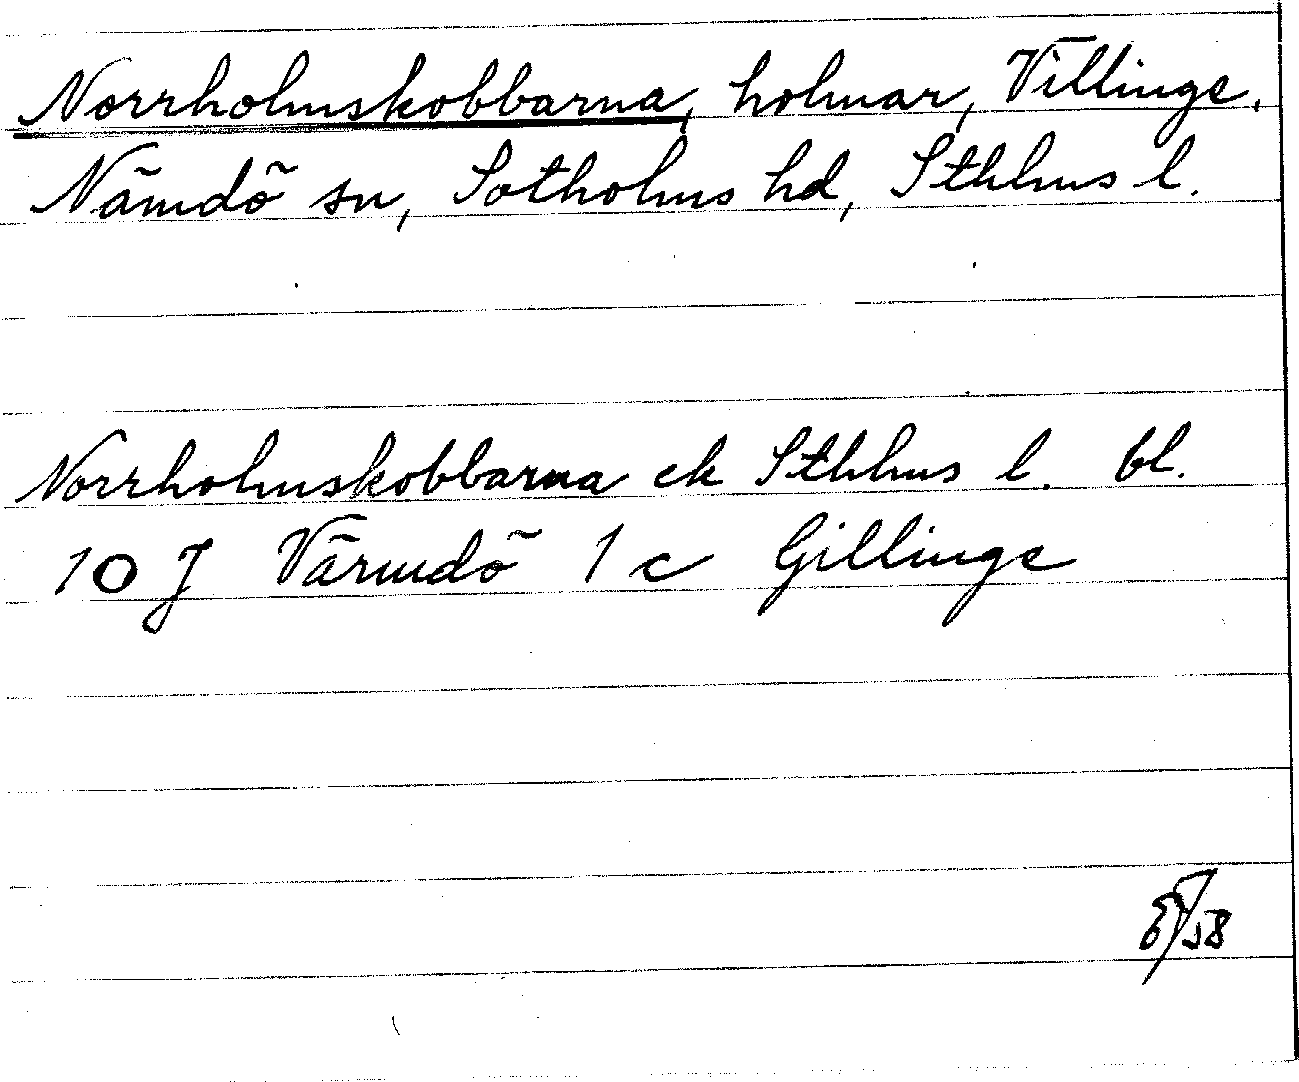 Norrholmskobbarna, holmar, Villinge,
Nämdö sn, Sotholms hd, Sthlms l.
Norrholmskobbarna ek Sthlms l. bl.
10 J Värmdö 1 c Gillinge